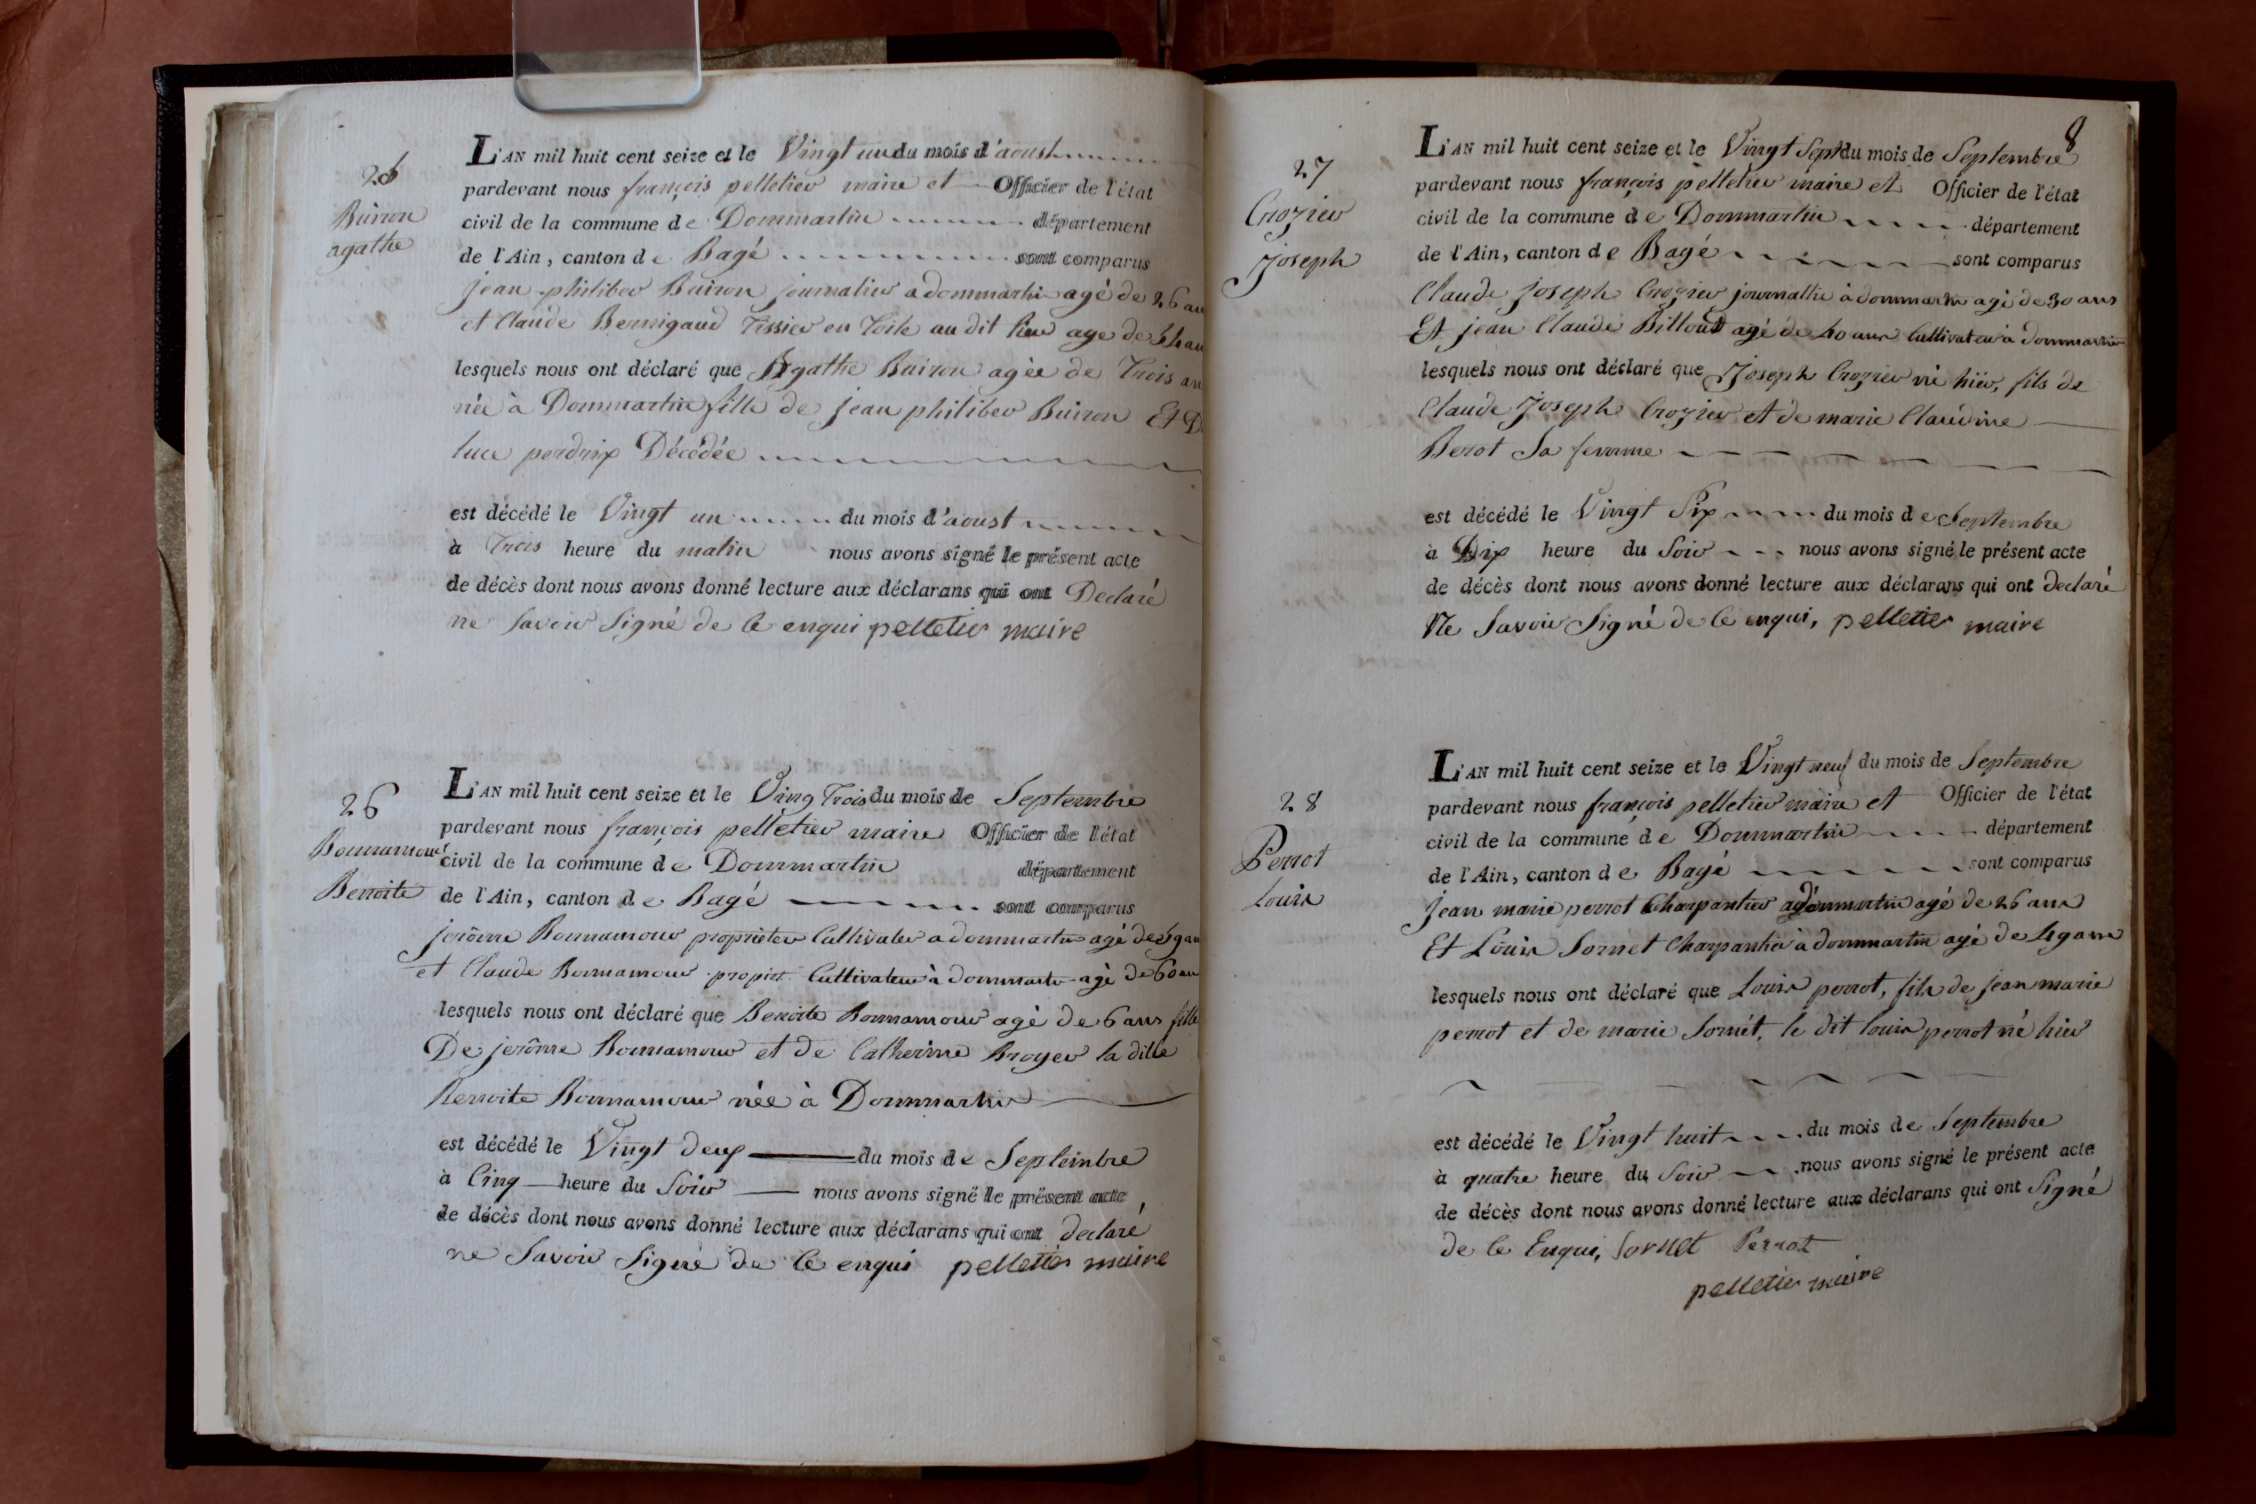 26
Buiron
agathe
L'AN mil huit cent seize et le Vingt un du mois d'aoust
pardevant nous françois pelletier maire et Officier de l'état
civil de la commune de Dommartin département
de l'Ain, canton de Bagé sont comparus
jean philiber Buiron journalier a dommartin agé de 26 an
et Claude Bernigaud Tissier en Toile au dit lieu age de
lesquels nous ont déclaré que Agathe Buiron agèe de Trois an
née à Dommartin fille de jean philiber Buiron Et D
luce perdrix Décédée
est décédé le Vingt un du mois d'aoust
à Trois heure du matin nous avons signé le présent acte
de décès dont nous avons donné lecture aux déclarans qui ont Declaré
ne Savoir Signé de Ce enqui pelletier maire
26
Bonnamour
Benoite
L'AN mil huit cent seize et le Ving Trois du mois de Septembre
pardevant nous françois pelletier maire Officier de l'état
civil de la commune de Dommartin département
de l'Ain, canton de Bagé sont comparus
jerôme Bonnamour proprieter Cultivater a dommartin agé de
et Claude Bonnamour propirt Cultivateur à dommartin agé de 60 an
lesquels nous ont déclaré que Benoite Bonnamour agé de 6 ans fille
De jerôme Bonnamour et de Catherine Broyer la dille
Benoite Bonnamour née à Dommartin
est décédé le Vingt deux du mois de Septeinbre
à Cinq heure du Soir nous avons signé le présent acte
de décès dont nous avons donné lecture aux déclarans qui ont declaré
ne Savoir Signé de Ce enqui pelletier maire
8
27
Crozier
Joseph
L'AN mil huit cent seize et le Vingt Sept du mois de Septembre
pardevant nous françois pelletier maire et Officier de l'état
civil de la commune de Dommartin département
de l'Ain, canton de Bagé sont comparus
Claude Joseph Crozier journallie à dommartin agé de 30 ans
Et jean Claude Billoud agé de 40 ans Cultivateur à dommartin
lesquels nous ont déclaré que Joseph Crozier né hier, fils de
Claude Joseph Crozier et de marie Claudine
Berot Sa femme
est décédé le Vingt Six du mois de Septembre
à Dix heure du Soir nous avons signé le présent acte
de décès dont nous avons donné lecture aux déclarans qui ont declaré
Ne Savoir Signé de Ce enqui, pelletier maire
28
Perrot
Louis
L'AN mil huit cent seize et le Vingt neuf du mois de Septembre
pardevant nous françois pelletier maire et Officier de l'état
civil de la commune de Dommartin département
de l'Ain, canton de Bagé sont comparus
Jean marie perrot Charpantier a dommartin agé de 26 ans
Et Louis Sornet Charpantier à dommartin agé de 49 ans
lesquels nous ont déclaré que Louis perrot, fils de jean marie
perrot et de marie Sornét, le dit louis perrot né hier
est décédé le Vingt huit du mois de Septembre
à quatre heure du Soir nous avons signé le présent acte
de décès dont nous avons donné lecture aux déclarans qui ont Signé
de Ce Enqui, Sornet Perrot
pelletier maire